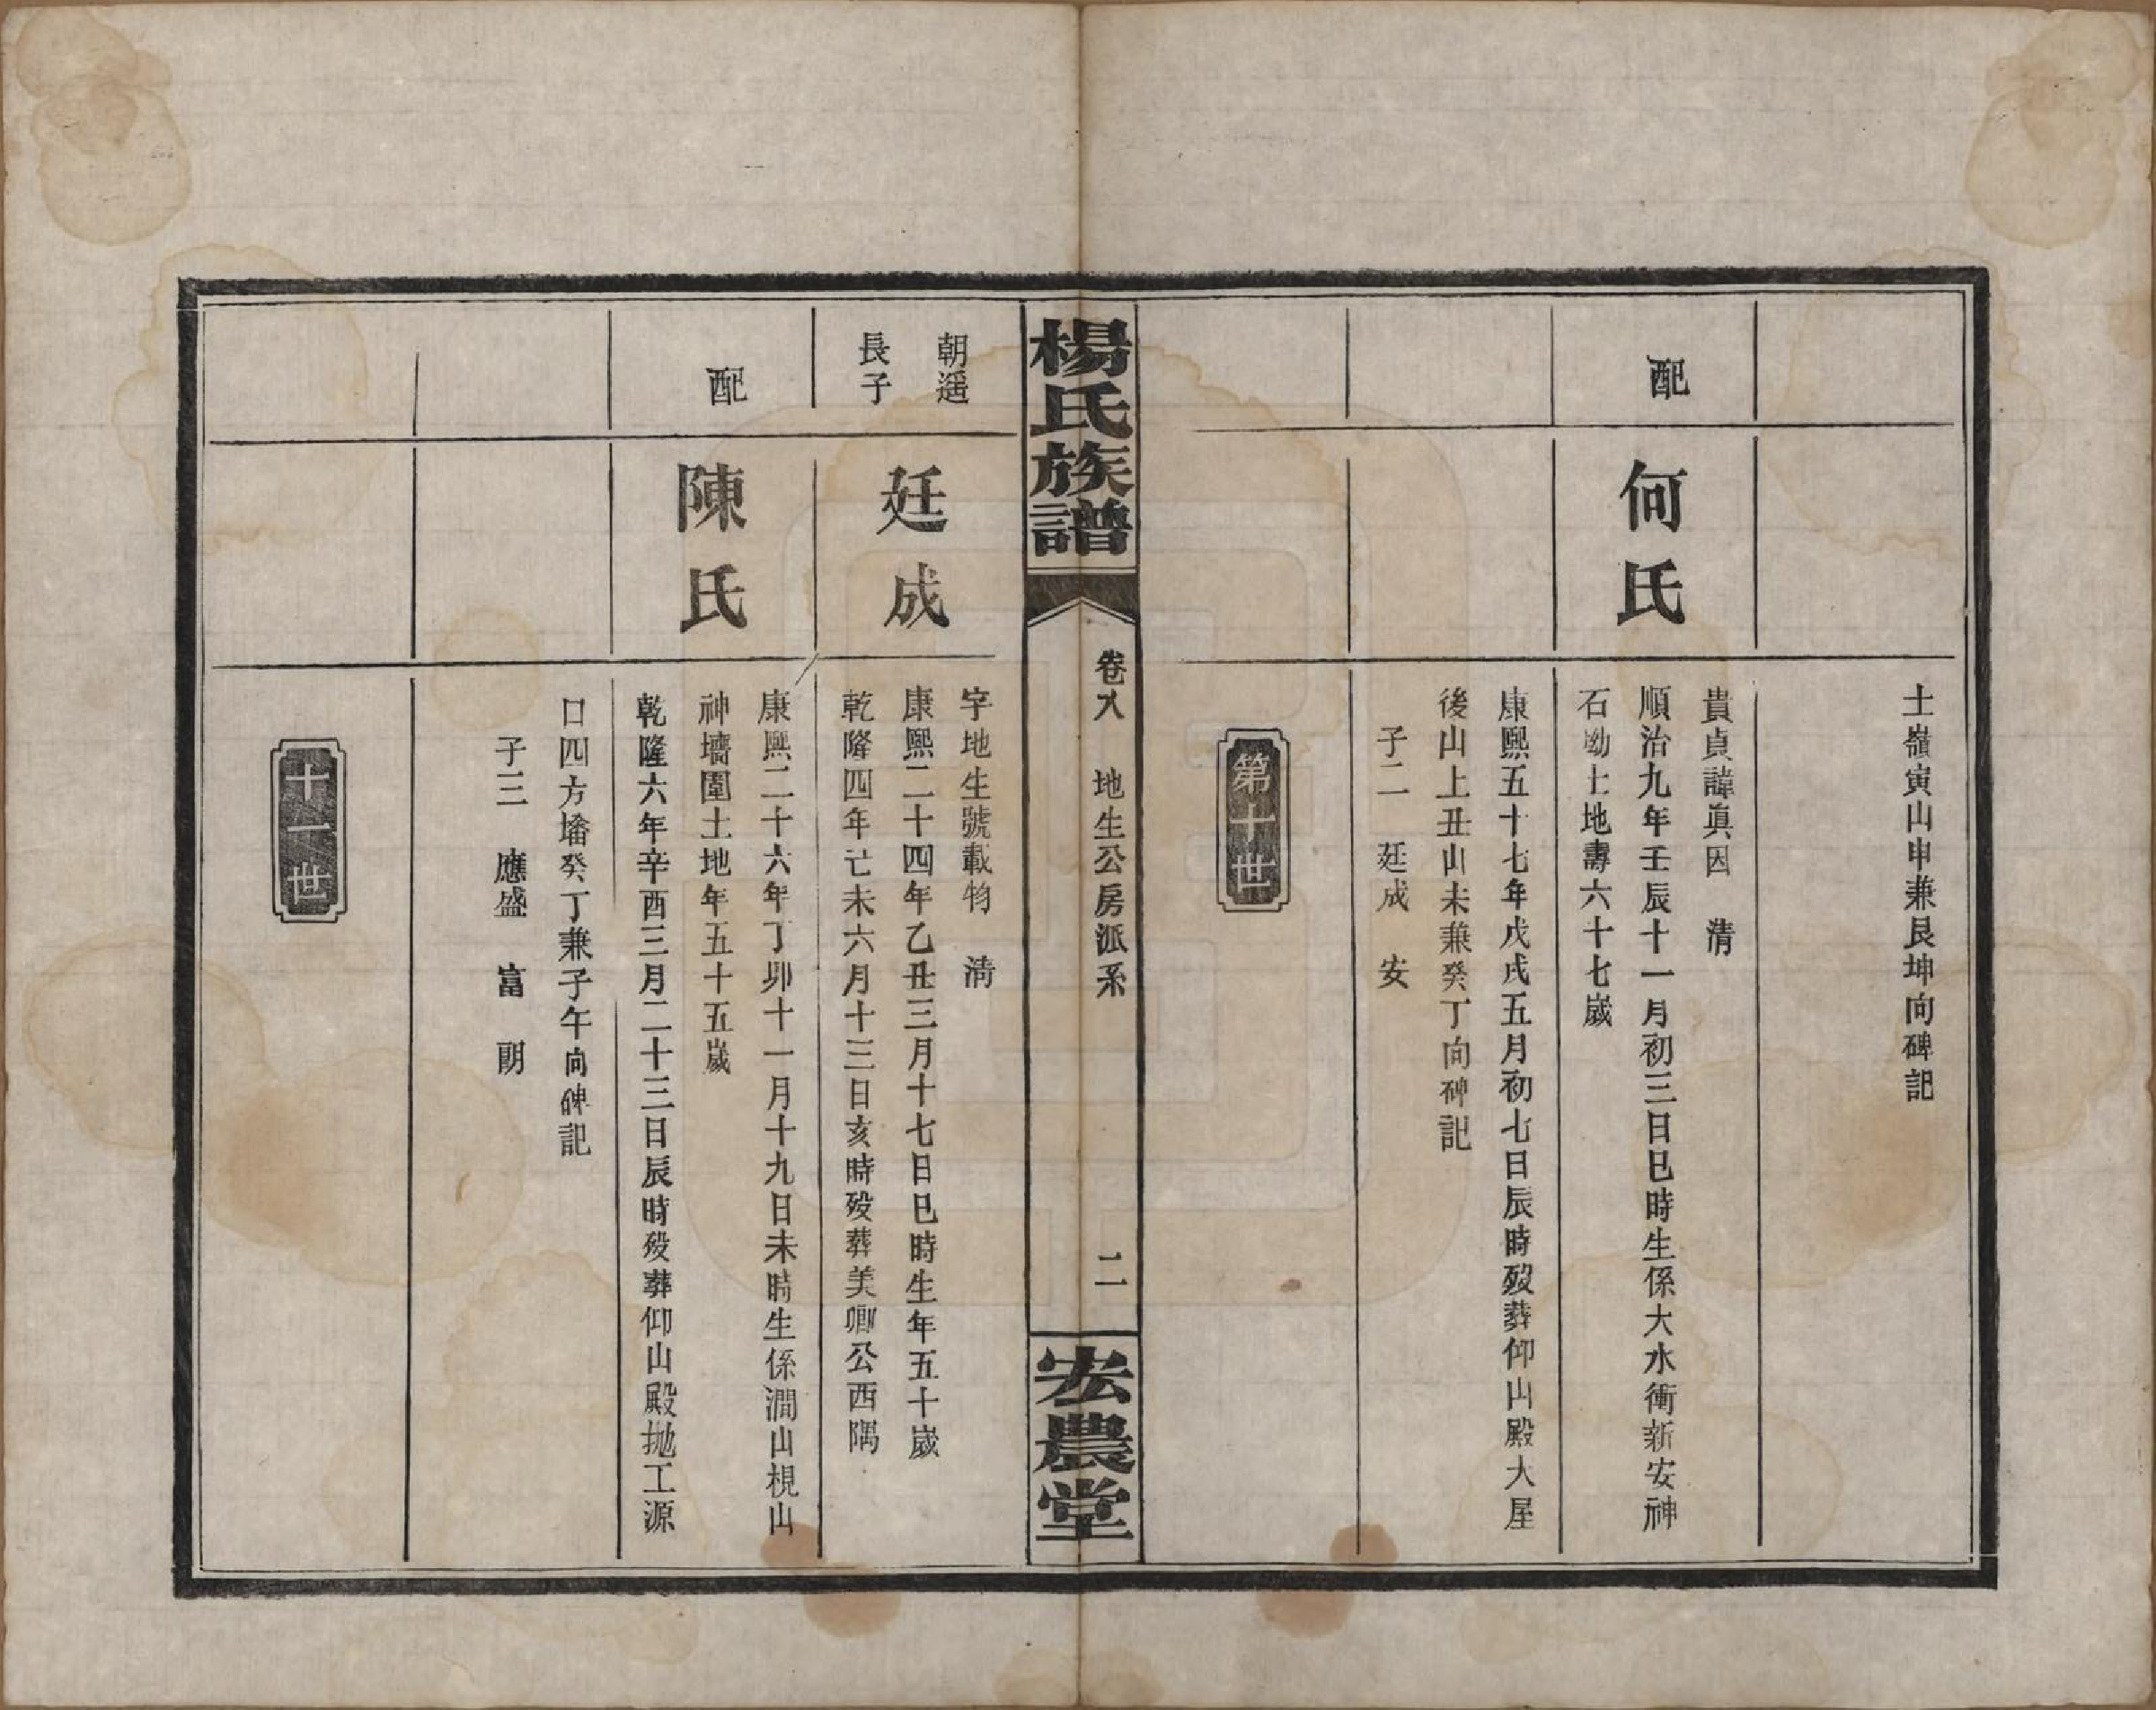 土嶺寅山申兼艮坤向碑記
配
何氏
貴貞諱眞因　清
順治九年壬辰十一月初三日巳時生係大水衝新安神
石坳土地壽六十七歲
康熙五十七年戊戌五月初七日辰時歿葬仰山殿大屋
後山上丑山未兼癸丁向碑記
子二　廷成　安
第十世
楊氏族譜
卷八　地生公房派系
二
宏農堂
朝遥
長子
廷成
字地生號載物　清
康熙二十四年乙丑三月十七日巳時生年五十歲
乾隆四年己未六月十三日亥時歿葬美卿公西隅
配
陳氏
康熙二十六年丁卯十一月十九日未時生係澗山梘山
神墻圍土地年五十五歲
乾隆六年辛酉三月二十三日辰時歿葬仰山殿拋工源
口四方墦癸丁兼子午向碑記
子三　應盛　富　朗
十一世